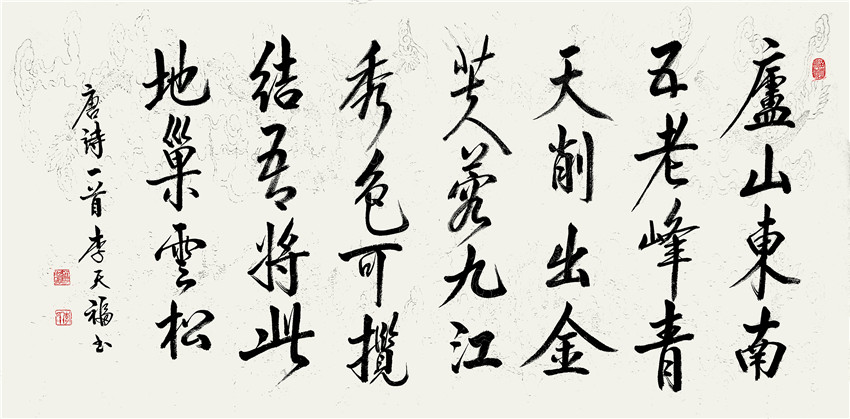 廬山東南
五老峰青
天削出金
芙蓉九江
秀色可攬
結吾將此
地巢雲松
唐诗一首李天福书